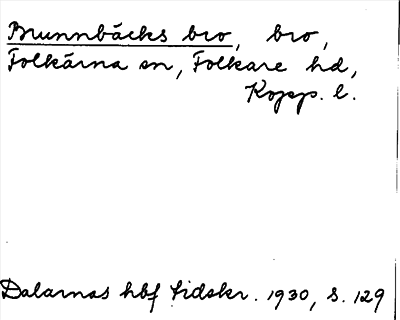 Brunnbäcks bro, bro,
Folkärna sn, Folkare hd,
Kopp. l.
Dalarnas hbf tidskr. 1930, s. 129